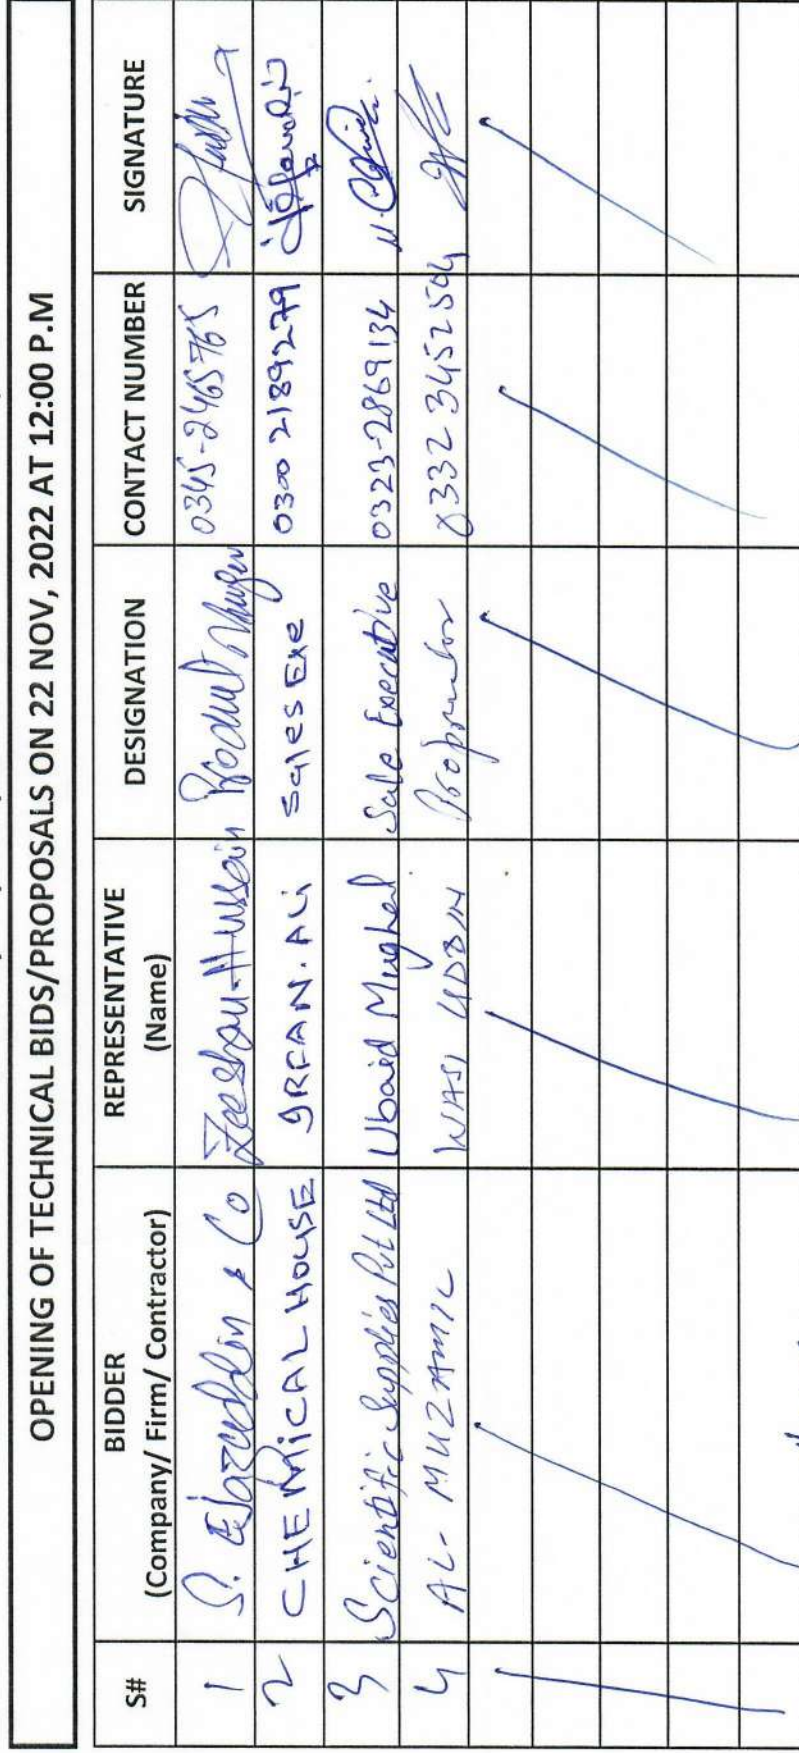 OPENING OF TECHNICAL BIDS/PROPOSALS ON 22 NOV, 2022 AT 12:00 P.M
S# BIDDER (Company/ Firm/ Contractor) REPRESENTATIVE (Name) DESIGNATION CONTACT NUMBER SIGNATURE
1 S. Ejazuddin & Co Zeeshan Hussain Product 0345-2465765
2 CHEMICAL HOUSE IRFAN. ALi Sales Exe 0300 2189279
3 Scientific Supplies Pvt Ltd Ubaid Mughal Sale Executive 0323-2869134
4 AL- MUZAMIL WASI UDDIN Proprietor 0332 3452504